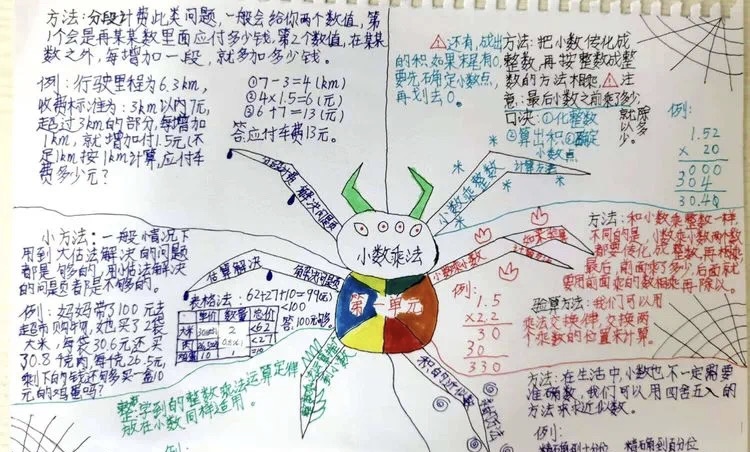 方法：分段计费此类问题，一般会给你两个数值，第
1个会是再某某数里面应付多少钱，第2个数值，在某某
数之外，每增加一段，就多加多少钱。
例：行驶里程为6.3km，
收费标准为：3km以内7元，
超过3km的部分，每增加
1km，就增加付1.5元(不
足1km按1km计算，应付车
费多少元？
①7-3=4(km)
②4×1.5=6(元)
③6+7=13(元)
答：应付车费13元。
还有，成出
的积如果末尾有0，
要先确定小数点，
再划去0。
方法：把小数传化成
整数，再按整数成整
数的方法相乘，注
意：最后小数之前乘了多少，
就除
以多
少。
口决：①化整数
②算出积③确定
小数点
例：
1.52
× 20
000
304
30.40
分段计费
解决问题
小数乘整数
计算方法
小数乘法
第一单元
小方法：一般情况下
用到大估法解决的问题
都是够的，用小估法解决
的问题都是不够的。
例：妈妈带了100元去
超市购物，她买了2袋
大米，每袋30.6元还买
30.8千克肉，每千克26.5元，
剩下的钱还够买一盒10
元的鸡蛋吗？
估算解决
解决问题
表格法：62+27+10=99(元)
<100
答：100元够。
单价 数量 总价
大米 2 <62
肉 <27
鸡蛋 10 1
小数乘小数
方法：和小数乘整数一样，
不同的是，小数乘小数两个数
都要传化成整数，再相乘
最后，前面乘了多少，后面就
要用前面乘的数相乘再除以。
例：
1.5
×2.2
30
30
330
验算方法：我们可以用
乘法交换律，交换两
个乘数的位置来计算。
整数学到的整数乘法运算定律
放在小数同样适用。
积的近似数
方法：在生活中，小数也不一定需要
准确数，我们可以用四舍五入的
方法来求近似数。
例：
例：
精确到十分位 精确到百分位